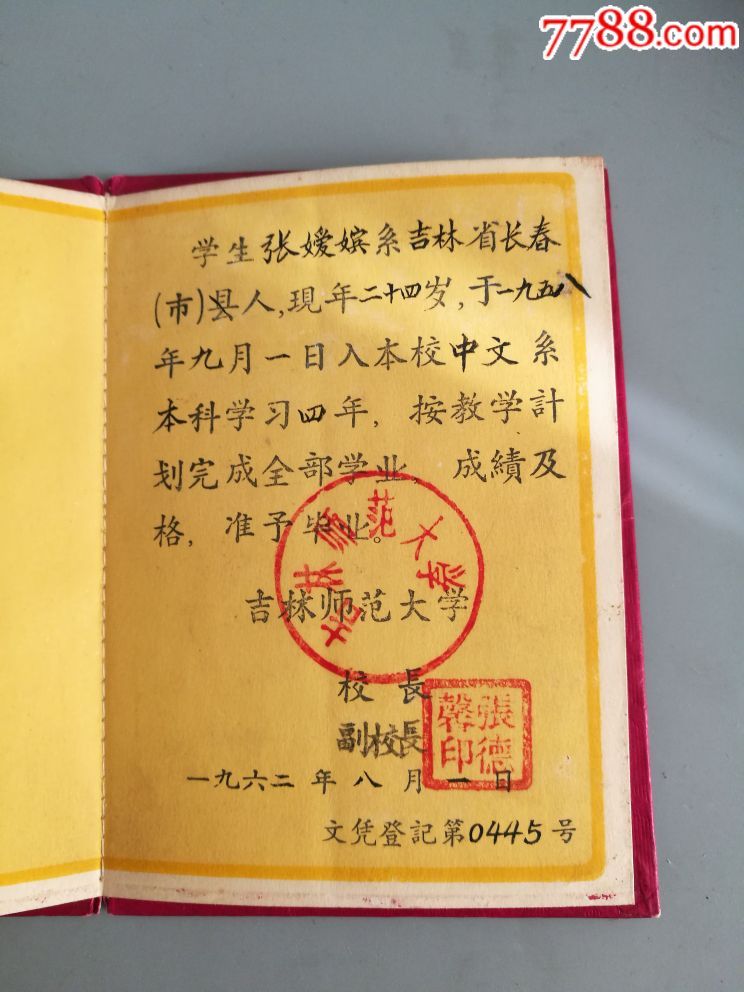 7788.com
学生张嫒嫔系吉林省长春
(市)县人,現年二十四岁,于一九五八
年九月一日入本校中文系
本科学习四年,按教学計
划完成全部学业,成績及
格,准予毕业。
吉林师范大学
吉林师范大学
校長
副校長
張德
馨印
一九六二年八月一日
文凭登記第0445号